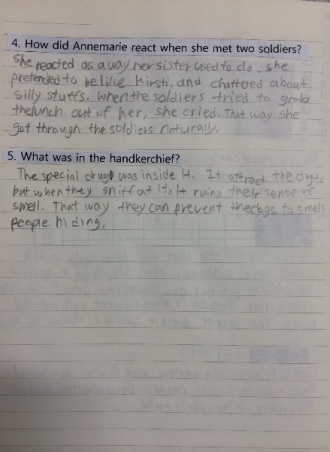 4. How did Annemarie react when she met two soldiers?
She reacted as a way her sister used to do. she
pretended to be like kirsti, and chattered about
silly stuffs. when the soldiers tried to grab
the lunch out of her, she cried. That way she
got through the soldiers naturally.
5. What was in the handkerchief?
The special drug was inside it. It attract the dogs,
but when they sniff at it, It ruins their sense of
smell. That way they can prevent the dogs to smell
people hiding.